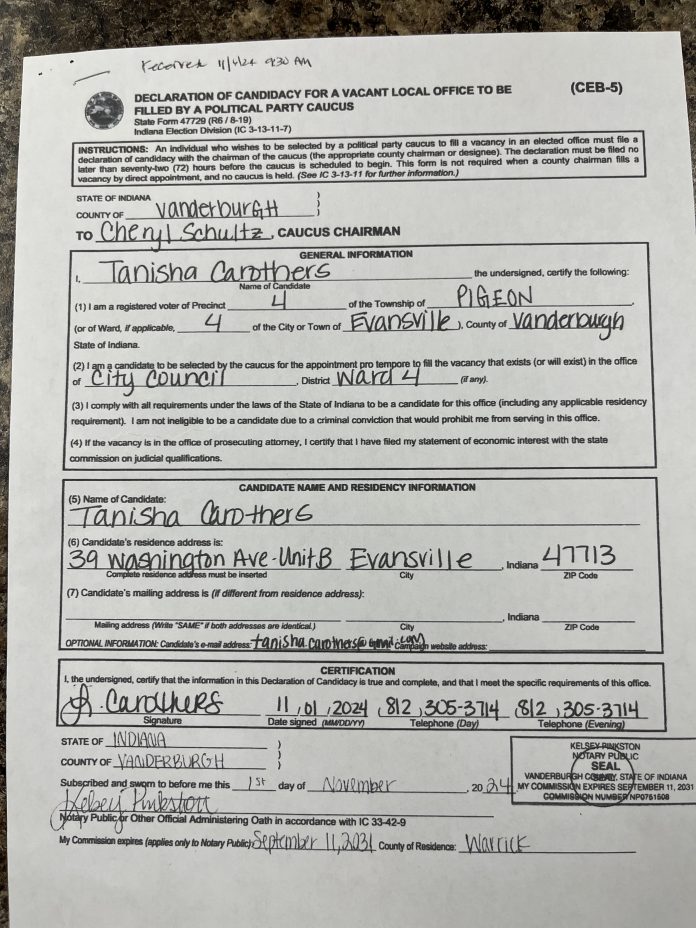 Received 11/4/24 9:30 AM
DECLARATION OF CANDIDACY FOR A VACANT LOCAL OFFICE TO BE (CEB-5)
FILLED BY A POLITICAL PARTY CAUCUS
State Form 47729 (R6 / 8-19)
Indiana Election Division (IC 3-13-11-7)
INSTRUCTIONS: An individual who wishes to be selected by a political party caucus to fill a vacancy in an elected office must file a
declaration of candidacy with the chairman of the caucus (the appropriate county chairman or designee). The declaration must be filed no
later than seventy-two (72) hours before the caucus is scheduled to begin. This form is not required when a county chairman fills a
vacancy by direct appointment, and no caucus is held. (See IC 3-13-11 for further information.)
STATE OF INDIANA )
COUNTY OF VanderburGH )
TO Cheryl Schultz, CAUCUS CHAIRMAN
GENERAL INFORMATION
I, Tanisha Carothers the undersigned, certify the following:
Name of Candidate
(1) I am a registered voter of Precinct 4 of the Township of PIGEON,
(or of Ward, if applicable, 4 of the City or Town of Evansville), County of Vanderburgh
State of Indiana.
(2) I am a candidate to be selected by the caucus for the appointment pro tempore to fill the vacancy that exists (or will exist) in the office
of City Council, District Ward 4 (if any).
(3) I comply with all requirements under the laws of the State of Indiana to be a candidate for this office (including any applicable residency
requirement). I am not ineligible to be a candidate due to a criminal conviction that would prohibit me from serving in this office.
(4) If the vacancy is in the office of prosecuting attorney, I certify that I have filed my statement of economic interest with the state
commission on judicial qualifications.
CANDIDATE NAME AND RESIDENCY INFORMATION
(5) Name of Candidate:
Tanisha Carothers
(6) Candidate's residence address is:
39 Washington Ave-Unit B Evansville, Indiana 47713
Complete residence address must be inserted City ZIP Code
(7) Candidate's mailing address is (if different from residence address):
, Indiana
Mailing address (Write "SAME" if both addresses are identical.) City ZIP Code
OPTIONAL INFORMATION: Candidate's e-mail address: tanisha.carothers@gmail.com Campaign website address:
CERTIFICATION
I, the undersigned, certify that the information in this Declaration of Candidacy is true and complete, and that I meet the specific requirements of this office.
Carothers 11/01/2024 (812) 305-3714 (812) 305-3714
Signature Date signed (MM/DD/YY) Telephone (Day) Telephone (Evening)
STATE OF INDIANA )
COUNTY OF VANDERBURGH )
Subscribed and sworn to before me this 1st day of November, 2024
Kelsey Pinkston
Notary Public or Other Official Administering Oath in accordance with IC 33-42-9
My Commission expires (applies only to Notary Public) September 11, 2031 County of Residence: Warrick
KELSEY PINKSTON
NOTARY PUBLIC
SEAL
VANDERBURGH COUNTY, STATE OF INDIANA
MY COMMISSION EXPIRES SEPTEMBER 11, 2031
COMMISSION NUMBER NP0751508